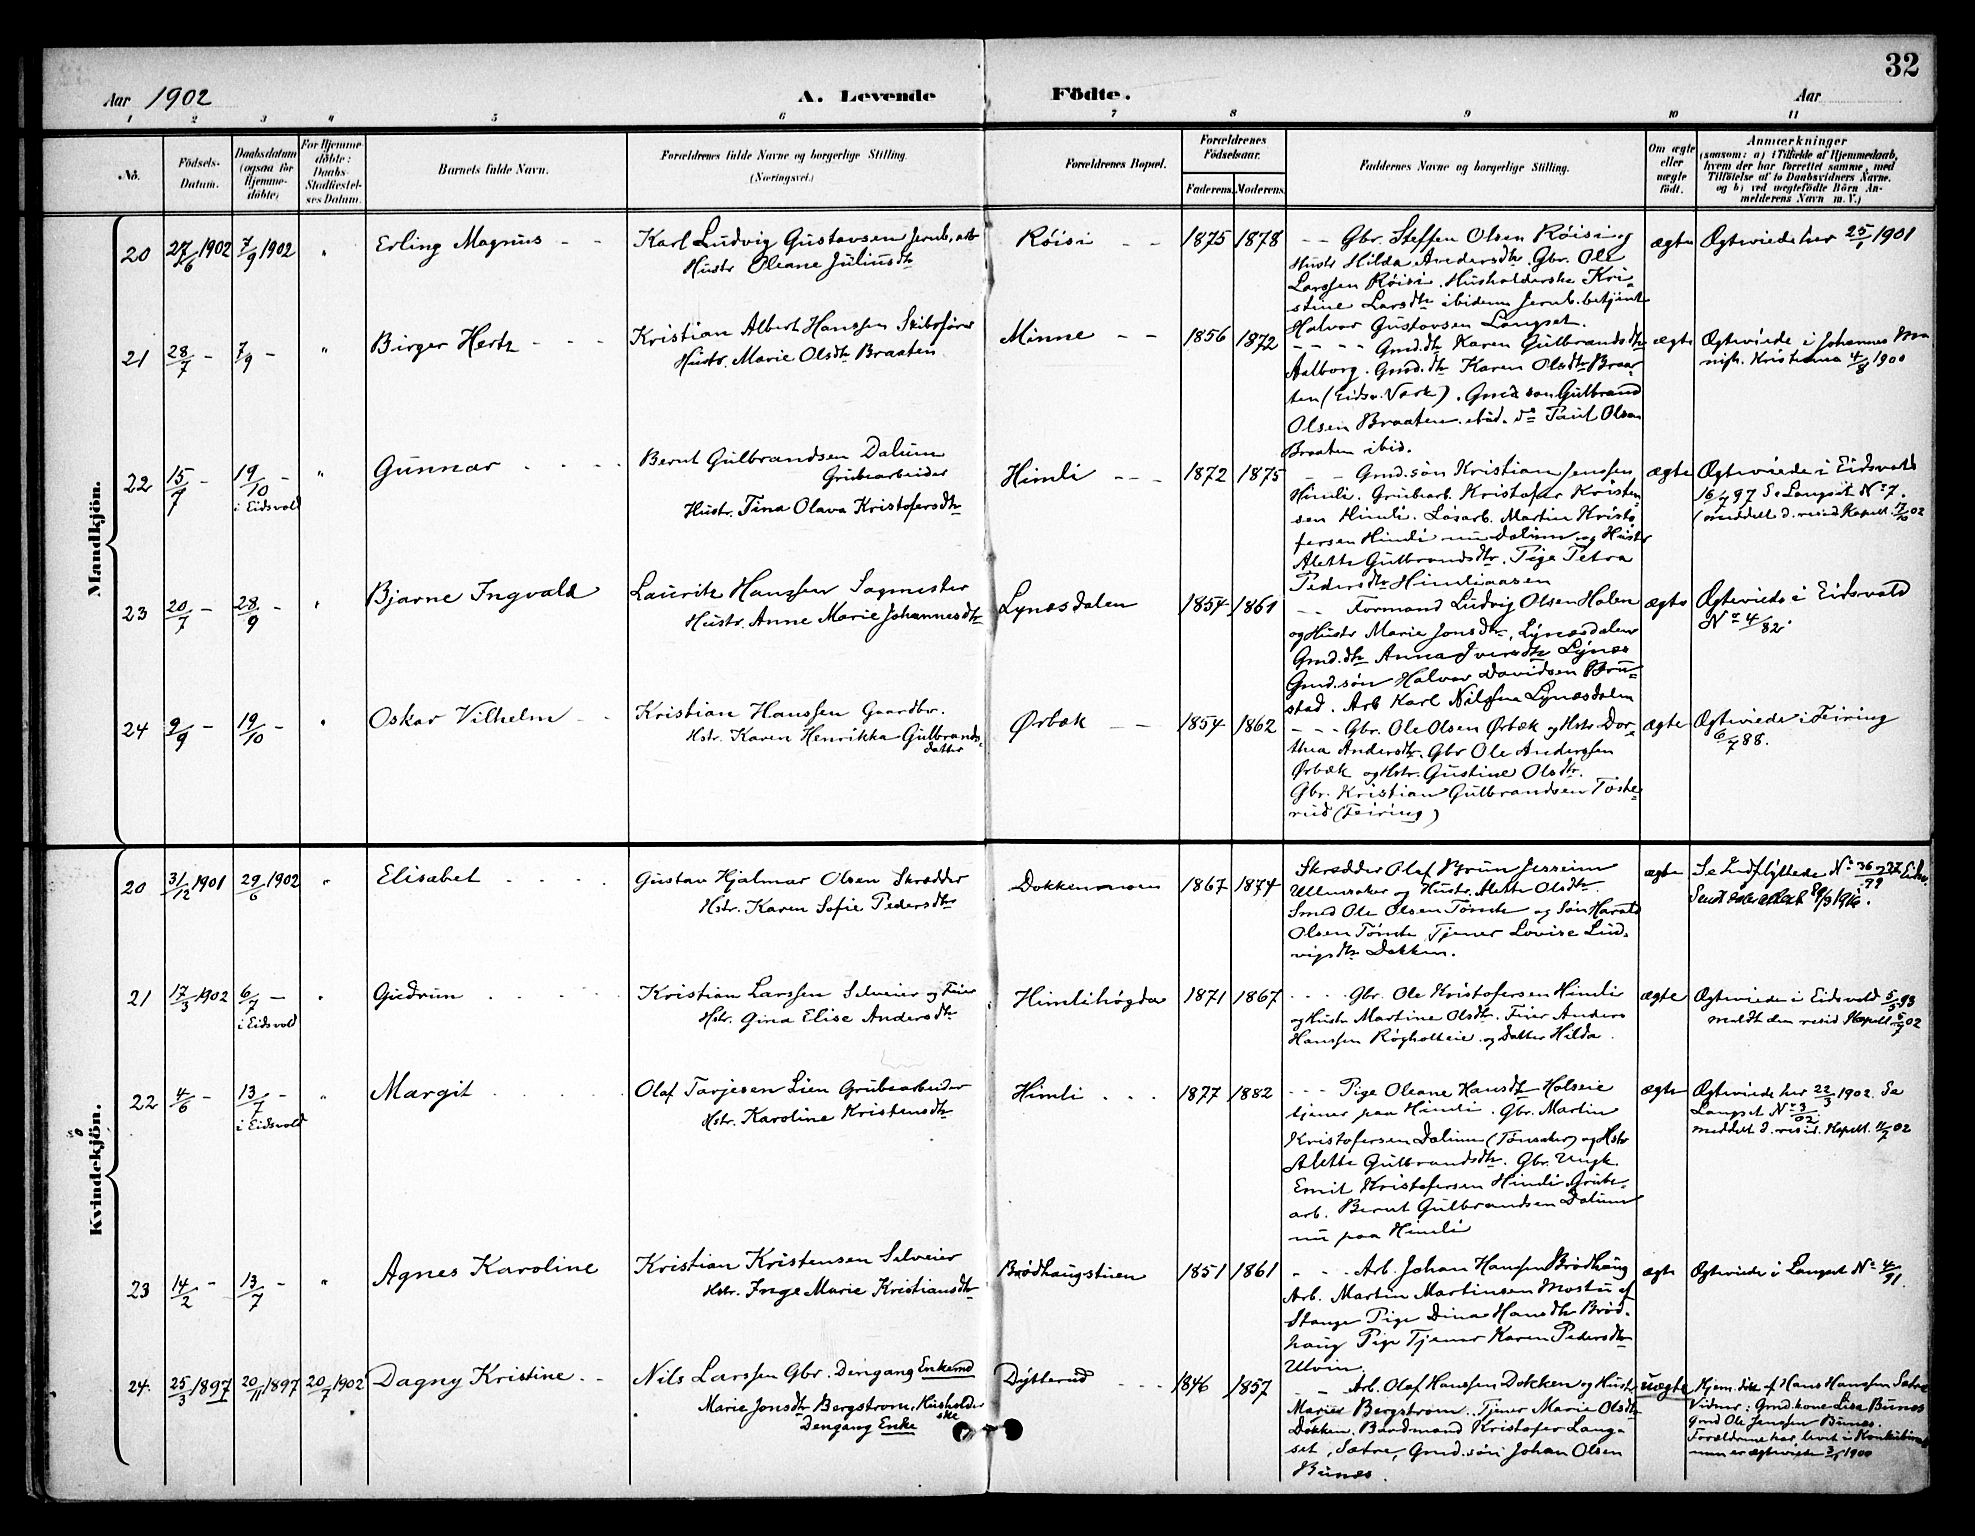 32
Aar 1902
A. Levende Födte.
Aar
1 2 3 4 5 6 7 8 9 10 11
No.
Födsels-Datum.
Daabsdatum (ogsaa for Hjemme-döbte)
For Hjemme-döbte: Daabs-Stadfæstel-ses Datum.
Barnets fulde Navn.
Forældrenes fulde Navne og borgerlige Stilling. (Næringsvei.)
Forældrenes Bopæl.
Forældrenes Födselsaar.
Faderens. Moderens.
Faddernes Navne og borgerlige Stilling.
Om ægte eller uægte födt.
Anmærkninger
(saasom: a) i Tilfælde af Hjemmedaab,
hvem der har forrettet samme, med
Tilföielse af to Daabsvidners Navne,
og b) ved uægtefödte Börn An-
melderens Navn m. V.)
Mandkjön.
20 27/6 1902 7/9 1902 " Erling Magnus - -
Karl Ludvig Gustavsen Jernb. arb
Hustr Oleane Juliusdtr
Røisi - - 1875 1878
- - Gbr. Steffen Olsen Røisi og
Hustr Hilda Andersdtr. Gbr. Ole
Larssen Røisi. Husholderske Kri-
stine Larsdtr ibidem Jernb. betjent
Halvor Gustavsen Langset.
ægte Ægteviede her 25/1 1901
21 28/7 - 7/9 - " Birger Hertz - - -
Kristian Albert Hanssen Skibsfører
Hustr. Marie Olsdtr Braaten
Minne - - 1856 1872
- - - - Gmd.dtr Karen Gulbrandsdtr
Aalborg. Gmd.dtr Karen Olsdtr Braa-
ten (Eidsv. Verk). Gmd søn Gulbrand
Olsen Braaten ibid. do Paul Olsen
Braaten ibid.
ægte Ægteviede i Johannes Me-
nigh. Kristiania 4/8 1900
22 15/7 - 19/10 - i Eidsvold " Gunnar - - - -
Bernt Gulbrandsen Dalum
Grubearbeider
Hustr. Tina Olava Kristofersdtr
Himli - - - 1872 1875
- - Gmd.søn Kristian Jenssen
Himli. Grubearb. Kristofer Kristen
sen Himli. Løsarb. Martin Kristo
fersen Himli nu Dalum og Hustr
Alette Gulbrandsdtr. Pige Petra
Pedersdtr Himliaasen
ægte Ægteviede i Eidsvold
16/7 97 Se Langset No 7.
(meddelt d. resid Kapell. 17/10 02
23 20/7 - 28/9 - " Bjarne Ingvald
Lauritz Hanssen Sagmester
Hustr. Anne Marie Johannesdtr
Lynæsdalen 1854 1861
- - Formand Ludvig Olsen Holen
og Hustr Marie Jonsdtr, Lynæsdalen
Gmd.dtr Anna Iversdtr Lynæs
Gmd.søn Halvor Davidsen Bru-
stad. Arb Karl Nilssen Lynæsdalen
ægte Ægteviede i Eidsvold
No 4/82.
24 9/9 - 19/10 - " Oskar Vilhelm - -
Kristian Hanssen Gaardbr.
Hstr. Karen Henrikka Gulbrands-
datter
Ørbæk - - 1854 1862
- - - Gbr. Ole Olsen Ørbæk og Hstr Dor-
thea Andersdtr. Gbr Ole Anderssen
Ørbæk og Hstr. Gustine Olsdtr.
Gbr. Kristian Gulbrandsen Toste-
rud (Feiring)
ægte Ægteviede i Feiring
6/7 88.
Kvindekjön.
20 31/12 1901 29/6 1902 " Elisabet - - - -
Gustav Hjalmar Olsen Skrædder
Hstr. Karen Sofie Pedersdtr
Dokkenmoen 1867 1874
Skrædder Olaf Brun Jessum
Ullensaker og Hustr. Alette Olsdtr.
Smed Ole Olsen Tømte og Søn Harald
Olsen Tømte, Tjener Lovise Lud-
vigsdtr Dokken.
ægte Se Indflyttede No 36 og 37 Eidsv.
99
21 17/3 1902 6/7 - i Eidsvold " Gudrun - - - -
Kristian Larssen Selveier og Feier
Hstr. Gina Elise Andersdtr
Himlihøgda 1871 1867
- - - - Gbr. Ole Kristofersen Himli
og Hustr Martine Olsdtr. Feier Anders
Hanssen Røgholteie og Datter Hilda.
ægte Ægteviede i Eidsvold 5/5 93
meldt den resid Kapell 5/7 02
22 4/6 - 13/7 - i Eidsvold " Margit - - - -
Olaf Tarjesen Lien Grubearbeider
Hstr. Karoline Kristensdtr
Himli - - - 1877 1882
- - - Pige Oleane Hansdtr Holseie
tjener paa Himli. Gbr. Martin
Kristofersen Dalum (Tønsaker) og Hstr
Alette Gulbrandsdtr. Gbr. Ungk.
Emil Kristofersen Himli Grube-
arb. Bernt Gulbrandsen Dalum
nu paa Himli
ægte Ægteviede her 22/3 1902. Se
Langset No 3/02.
meddelt d. resid. Kapell. 11/7 02
23 14/2 - 13/7 - " Agnes Karoline
Kristian Kristensen Selveier
Hstr. Inge Marie Kristiansdtr
Brødhaugstuen 1851 1861
- - - Arb. Johan Hanssen Brødhaug
Arb. Martin Martinsen Mostu af
Stange Pige Dina Hansdtr Brød-
haug Pige Tjener Karen Pedersdtr
Ulvin.
ægte Ægteviede i Langset No 4/91.
24. 25/3 1897 20/11 1897 20/7 1902 Dagny Kristine - -
Nils Larssen Gbr. Dengang Enkemd
Marie Jonsdtr Bergstrøm, Husholder
ske
Dengang Enke
Dytterud - - - 1846 1857
- - Arb. Olaf Hanssen Dokken og Hustr
Maries Bergstrøm. Tjener Marie Olsdtr
Dokken. Baadmand Kristofer Lang-
set, Sætre, Gmd.søn Johan Olsen
Bunæs.
uægte Hjem. døbt af Hans Hanssen Sætre
Vidner: Gmd.kone Lisa Bunæs
Gmd Ole Jenssen Bunæs.
Forældrene har levet i Konkubinat
men er ægteviede 3/1 1900